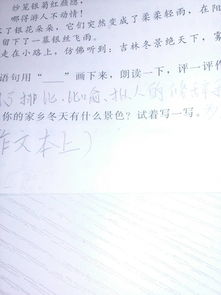 纱笼银菊红颜隐,
哪得游人不动情!
银花朵朵,它们突然变成了柔柔轻雨,在阳
留下了一幕银丝飞雨。
走在小路上,仿佛听到:吉林冬景绝天下,雾
语句用“——”画下来,朗读一下,评一评作
排比、比喻、拟人的修辞
你的家乡冬天有什么景色?试着写一写。
作文本上)